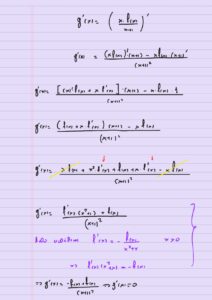 g'(x) = ( x · f(x) / x+1 )'
g'(x) = (x f(x))'(x+1) - x f(x)(x+1)' / (x+1)²
g'(x) = [(x)' f(x) + x f'(x)](x+1) - x f(x) · 1 / (x+1)²
g'(x) = (f(x) + x f'(x))(x+1) - x f(x) / (x+1)²
g'(x) = x f(x) + x² f'(x) + f(x) + x f'(x) - x f(x) / (x+1)²
g'(x) = f'(x)(x²+x) + f(x) / (x+1)²
f'(x) = - f(x) / x²+x x>0
=> f'(x)(x²+x) = - f(x)
=> g'(x) = -f(x)+f(x) / (x+1)² => g'(x) = 0